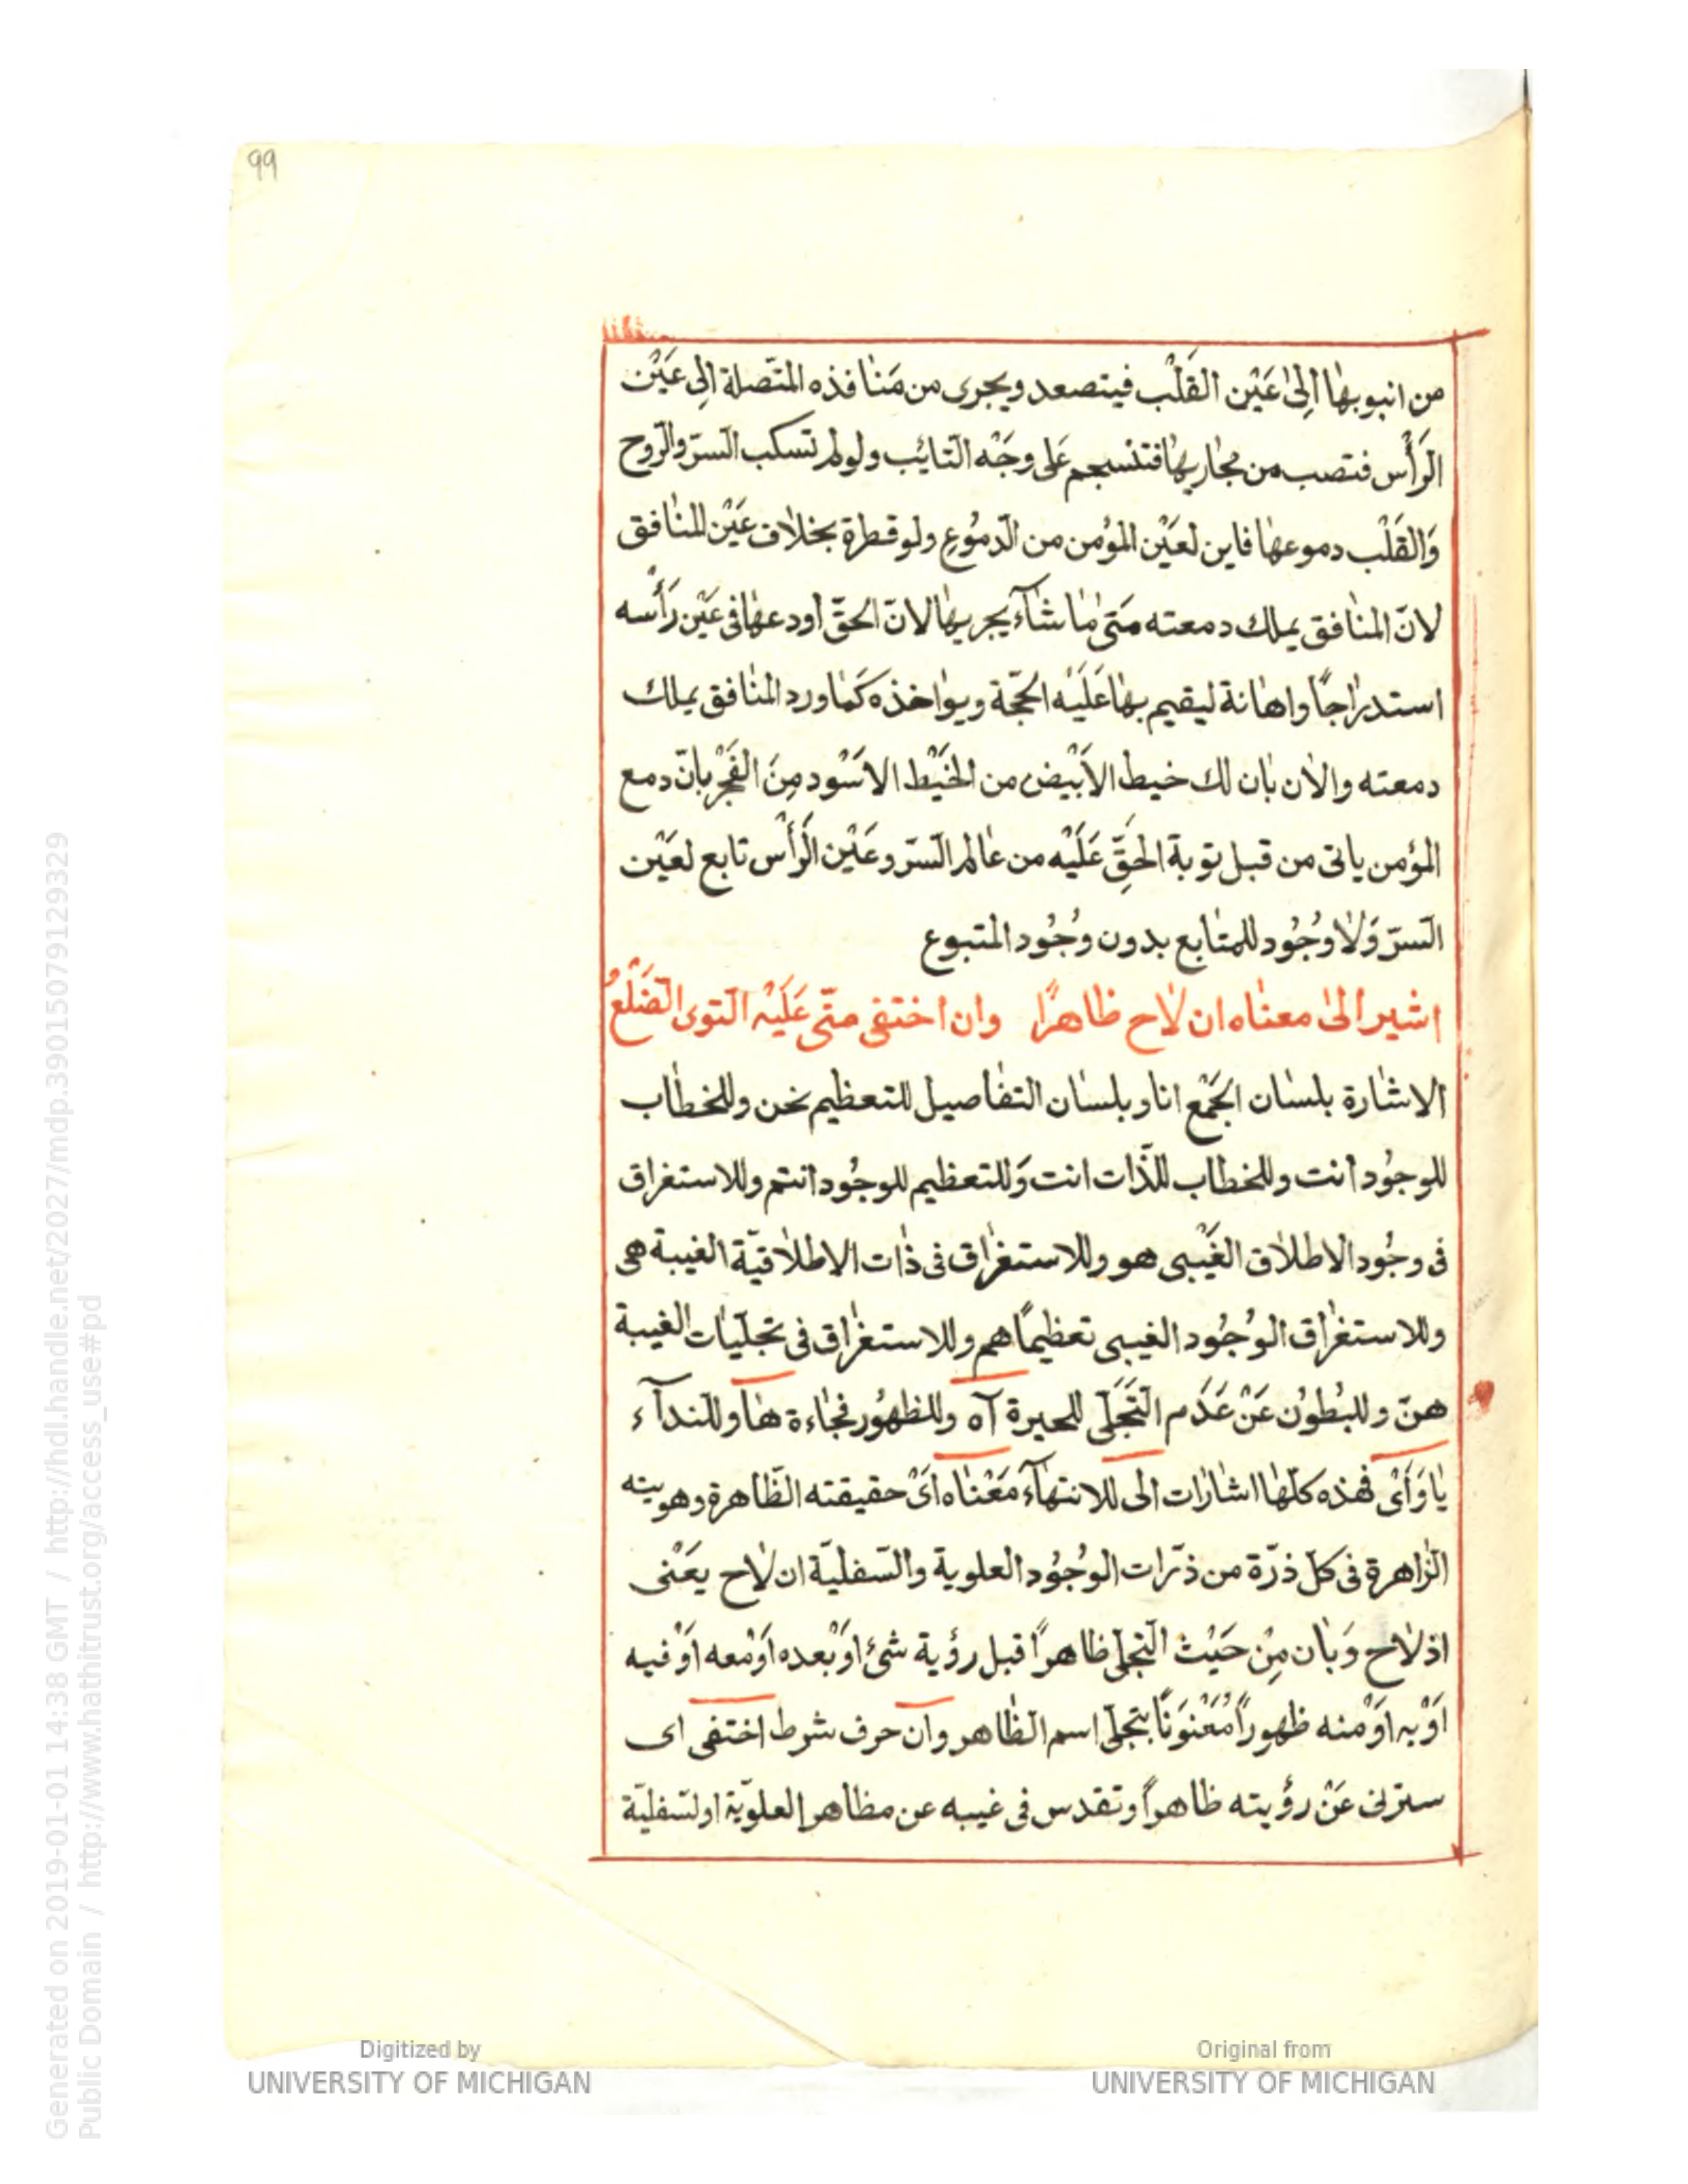 99
من انبوبها الى عَيْن القَلْب فيتصعد ويجرى من مَنافذه المتّصلة الى عَيْن
الرَّأْس فتصب من مجاريها فتنسجم عَلى وجَْه التائب ولو لم تسكب السرّ والرّوح
وَالقَلْب دموعها فاين لعَيْن المؤمن من الدّموُع ولو قطرة بخلاف عَيْن المنافق
لانّ المنافق يملك دمعته مَتى مٰا شآء يجريها لانّ الحقّ اودعها فى عَيْن رَأْسه
استدراجًا واهانة ليقيم بها عَلَيْه الحجّة ويواخذه كَما ورد المنافق يملك
دمعته والاٰن بٰان لك خيط الاَبْيض من الخَيْط الاسَْود مِنَ الفَجْر بانّ دمع
المؤمن ياتى من قبل توبة الحَقِّ عَلَيْه من عالم السرّ وعَيْن الرَّأْس تابع لعَيْن
السرّ وَلاٰ وُجُود للمتابع بدون وُجُود المتبوع
اشير الىٰ معناه ان لاٰح ظاهرًا وان اختفى متّى عَلَيْه التوى الضلْعُ
الاشارة بلسان الجَمْع انا وبلسان التفاصيل للتعظيم نحن وللخطاب
للوجوُد انت وللخطاب للذّات انت وَللتعظيم للوجُود انتم وللاستغراق
فى وجُود الاطلاق الغَيْبى هو وللاستغراق فى ذٰات الاطلاقيّة الغيبة هى
وللاستغراق الوُجُود الغيبى تعظيماً هم وللاستغراق فى تجلّيات الغيبة
هنّ وللبُطوُن عَنْ عَدَم التَجَلّى للحيرة آه وللظهُور فجاءة هٰا وللندآء
يٰا وَأَىْ فهذه كلّها اشارات الى للانتهآء مَعْناه اَىْ حقيقته الظّاهرة وهويته
الزّاهرة فى كلّ ذرّة من ذرّات الوُجُود العلوية والسّفليّة ان لاٰح يعَْنى
اذ لاٰح وَبٰان مِنْ حَيْث التجلى ظاهراً قبل رؤية شئ اوَْ بعده اوَْ معه اوَْ فيه
اوَْ به اوَْ منه ظهوراً مُعَْنْوَناً بتجلّى اسم الظاهر وان حرف شرط اختفى اى
سترلى عَنْ رؤيته ظاهراً وتقدس فى غيبه عن مظاهر العلويّة اولسّفليّة
Generated on 2019-01-01 14:38 GMT / http://hdl.handle.net/2027/mdp.39015079129329
Public Domain / http://www.hathitrust.org/access_use#pd
Digitized by
UNIVERSITY OF MICHIGAN
Original from
UNIVERSITY OF MICHIGAN